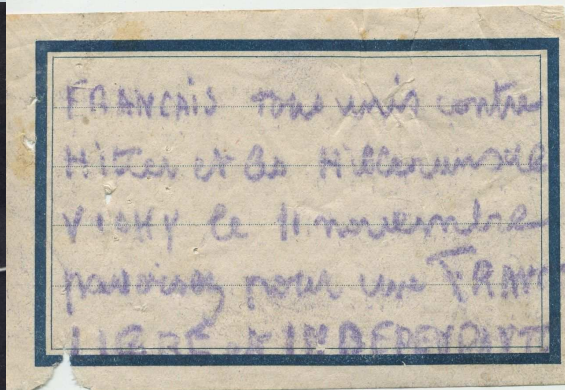 FRANCAIS tous unis contre
Hitler et les Hitleriens de
VICHY le 11 novembre
pavoisez pour une FRANC
LIBRE et INDEPENDANT